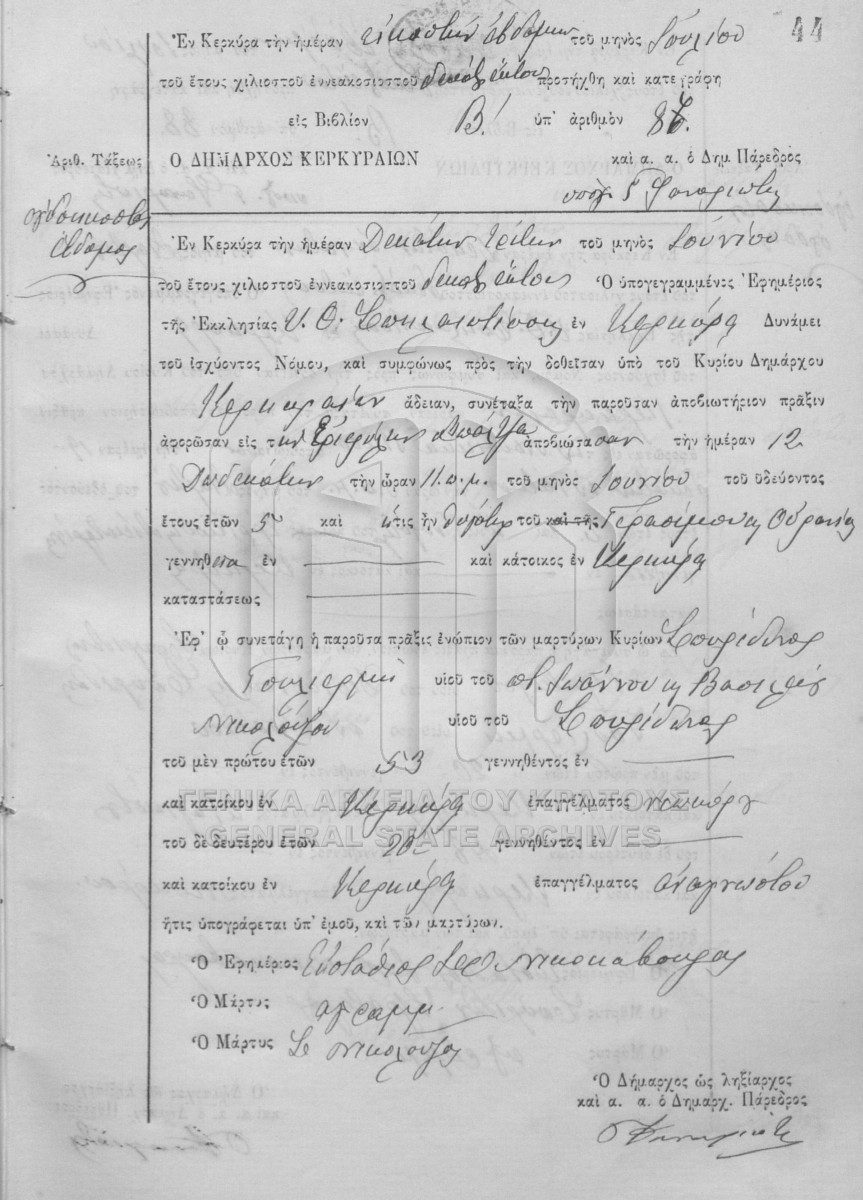 44
Ἐν Κερκύρα τὴν ἡμέραν εἰκοστὴν ἑβδόμην τοῦ μηνὸς Ἰουλίου
τοῦ ἔτους χιλιοστοῦ ἐννεακοσιοστοῦ δεκάτου ἕκτου προσήχθη καὶ κατεγράφη
εἰς Βιβλίον Β! ὑπ' ἀριθμὸν 87.
Ἀριθ. Τάξεως Ο ΔΗΜΑΡΧΟΣ ΚΕΡΚΥΡΑΙΩΝ καὶ α. α. ὁ Δημ Πάρεδρος
ὀγδοηκοστὸς
ἕβδομος
Ἐν Κερκύρα τὴν ἡμέραν Δεκάτην τρίτην τοῦ μηνὸς Ἰουνίου
τοῦ ἔτους χιλιοστοῦ ἐννεακοσιοστοῦ δεκάτου ἕκτου Ὁ ὑπογεγραμμένος Ἐφημέριος
τῆς Ἐκκλησίας Υ. Θ. Σπηλαιωτίσσης ἐν Κερκύρᾳ Δυνάμει
τοῦ ἰσχύοντος Νόμου, καὶ συμφώνως πρὸς τὴν δοθεῖσαν ὑπὸ τοῦ Κυρίου Δημάρχου
Κερκυραίων ἄδειαν, συνέταξα τὴν παροῦσαν ἀποβιωτήριον πρᾶξιν
ἀφορῶσαν εἰς τὴν ἀποβιώσασαν τὴν ἡμέραν 12
Δωδεκάτην τὴν ὥραν 11 π.μ. τοῦ μηνὸς Ἰουνίου τοῦ ὁδεύοντος
ἔτους ἐτῶν 5 καὶ ἥτις ἦν θυγάτηρ τοῦ καὶ τῆς Γερασίμου κ Οὐρανίας
γεννηθεῖσα ἐν καὶ κάτοικος ἐν Κερκύρᾳ
καταστάσεως
Ἐφ' ᾧ συνετάγη ἡ παροῦσα πρᾶξις ἐνώπιον τῶν μαρτύρων Κυρίων Σπυρίδωνος
υἱοῦ τοῦ π. Ἰωάννου κ Βασιλείου
Νικολούζου υἱοῦ τοῦ Σπυρίδωνος
τοῦ μὲν πρώτου ἐτῶν 53 γεννηθέντος ἐν
καὶ κατοίκου ἐν Κερκύρᾳ ἐπαγγέλματος νεωκόρου
ΓΕΝΙΚΑ ΑΡΧΕΙΑ ΤΟΥ ΚΡΑΤΟΥΣ
GENERAL STATE ARCHIVES
τοῦ δὲ δευτέρου ἐτῶν 20 γεννηθέντος ἐν
καὶ κατοίκου ἐν Κερκύρᾳ ἐπαγγέλματος ἀναγνώστου
ἥτις ὑπογράφεται ὑπ' ἐμοῦ, καὶ τῶν μαρτύρων.
Ὁ Ἐφημέριος Εὐστάθιος Ἱερ Νικοκάβουρας
Ὁ Μάρτυς ἀγράμμ.
Ὁ Μάρτυς Νικολούζος
Ὁ Δήμαρχος ὡς ληξίαρχος
καὶ α. α. ὁ Δημαρχ. Πάρεδρος